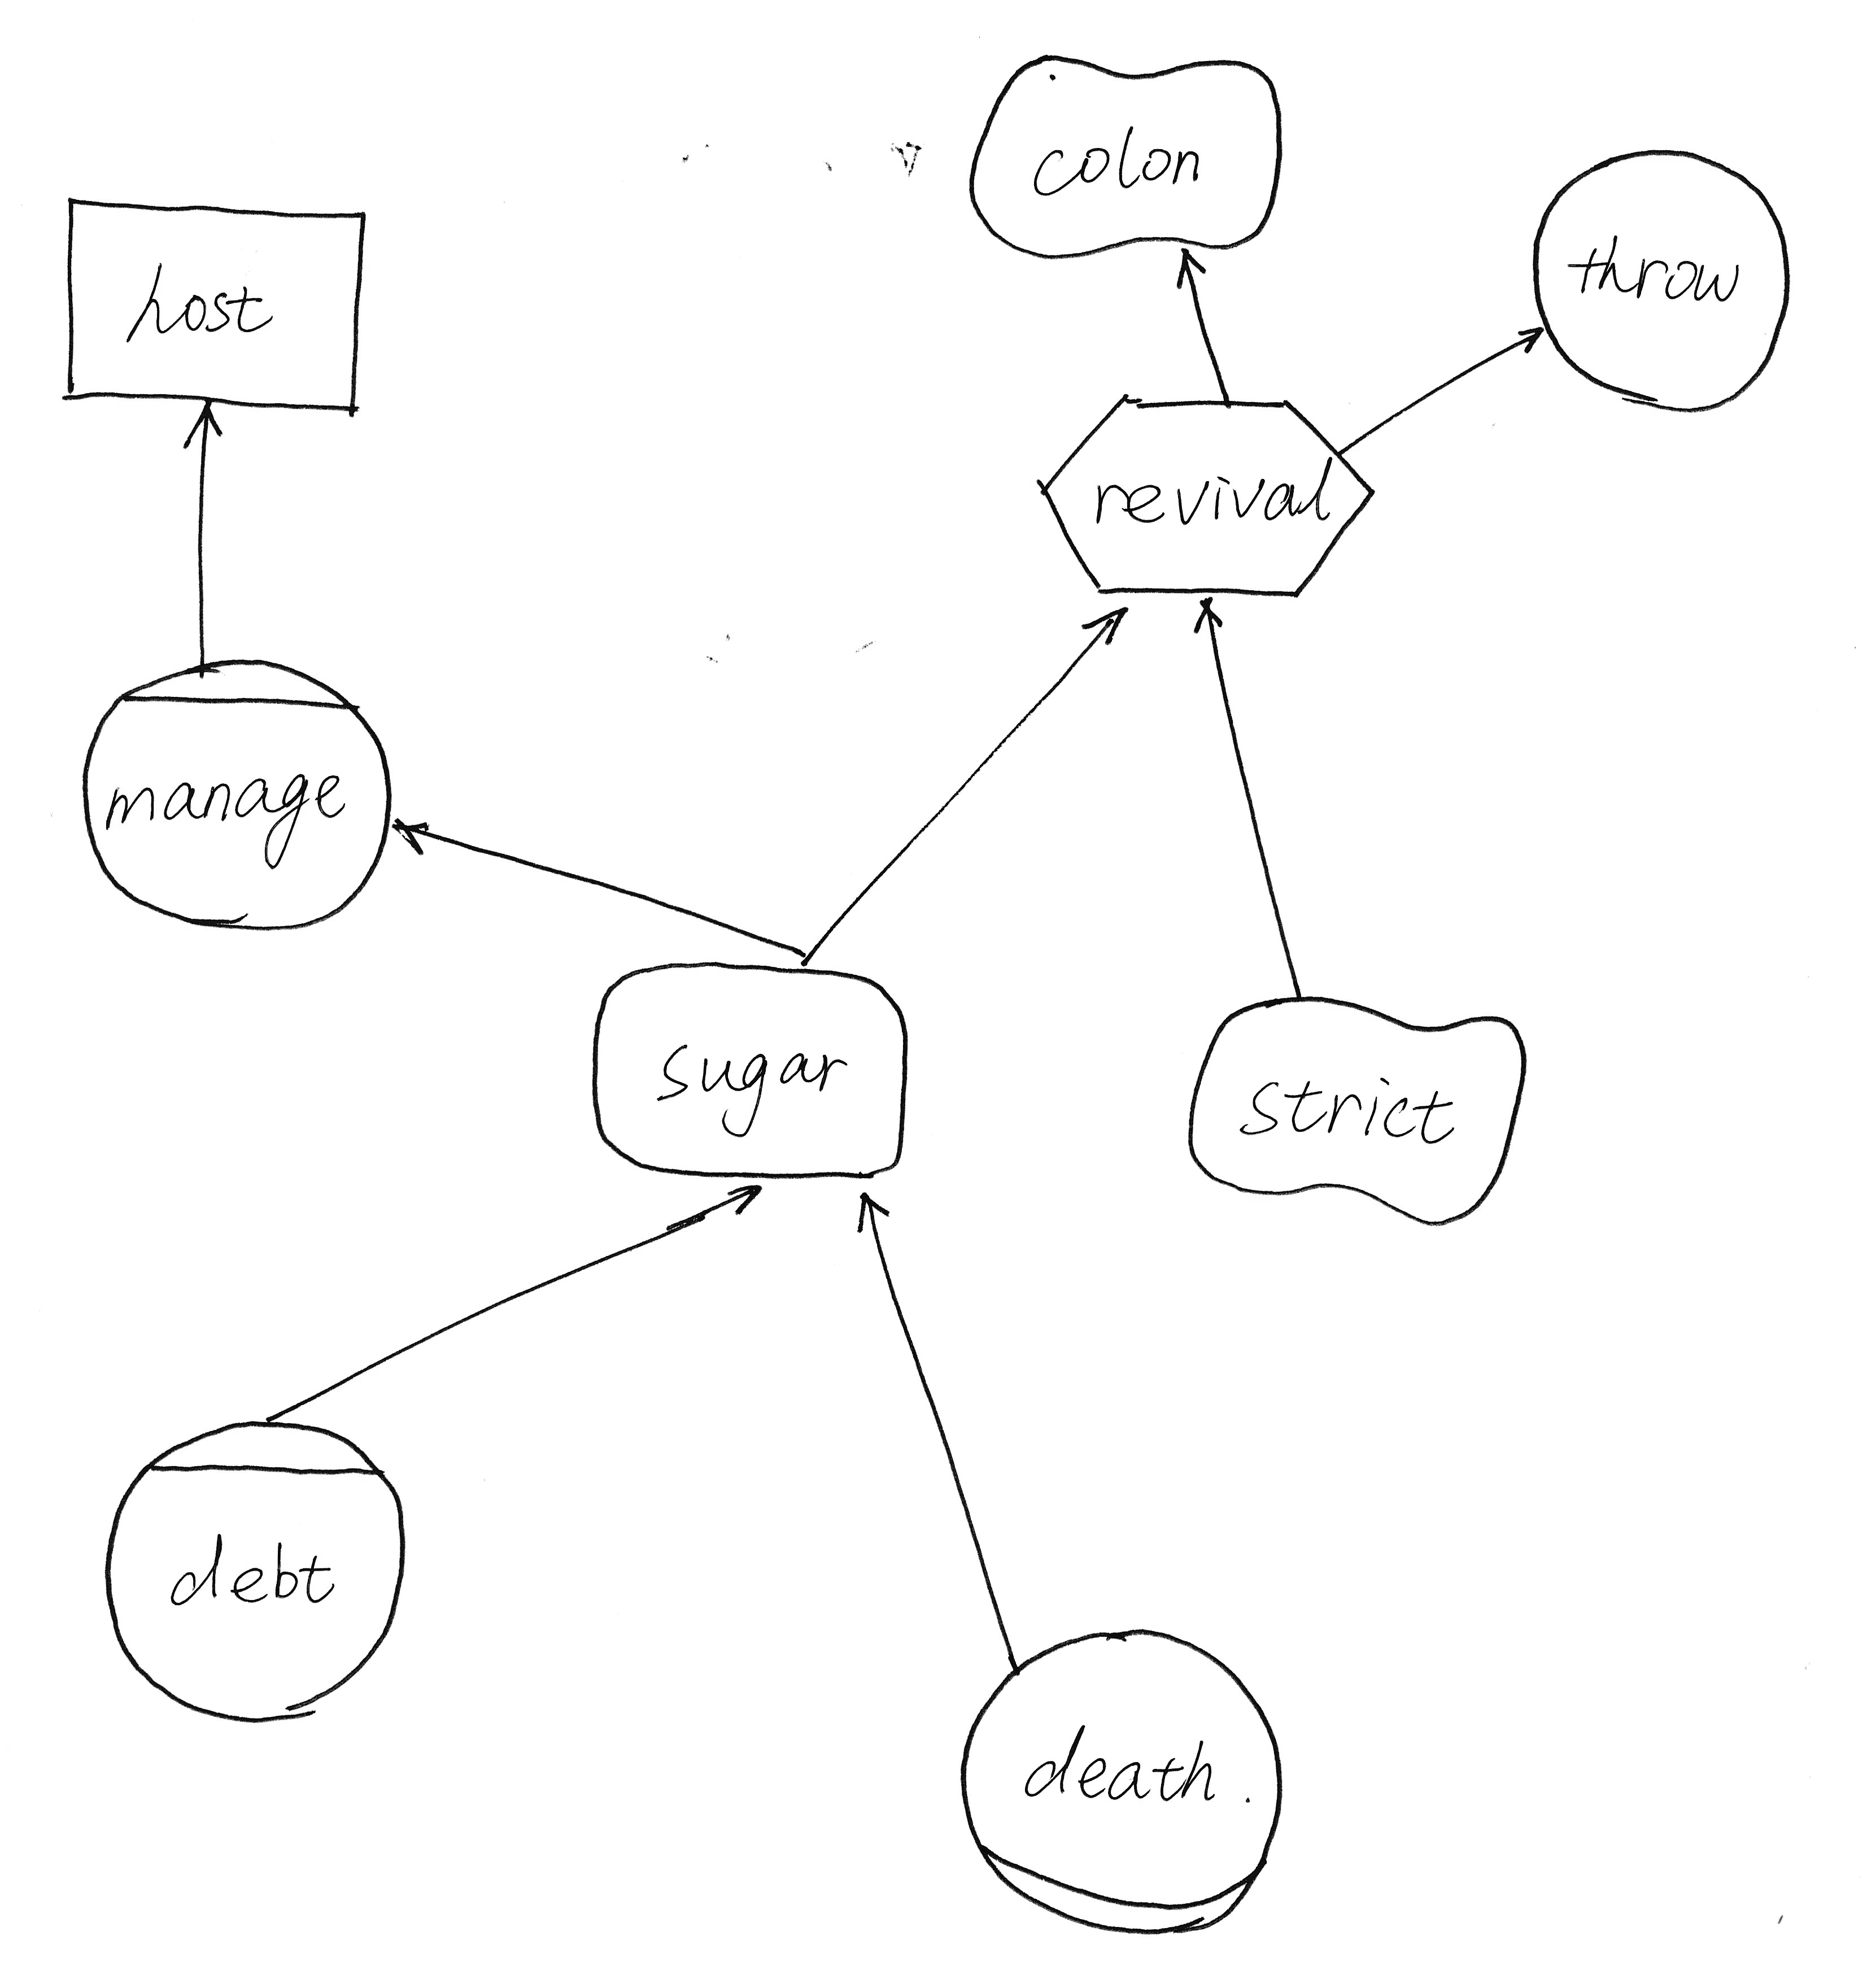 colon
throw
host
revival
manage
sugar
strict
debt
death.